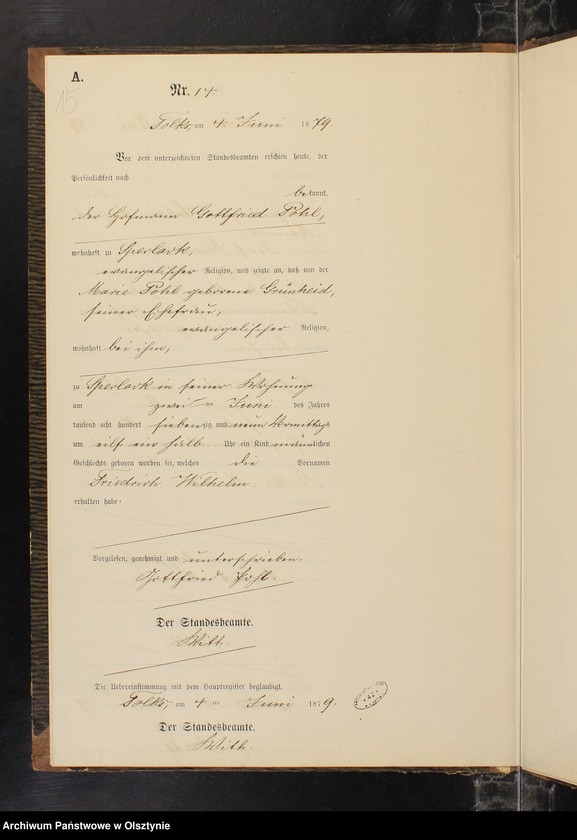 A.
15
Nr. 14.
Tolks, am 4. Juni 1879.
Vor dem unterzeichneten Standesbeamten erschien heute, der
Persönlichkeit nach
bekannt,
der Hofmann Gottfried Pohl,
wohnhaft zu Sperlack,
evangelischer Religion, und zeigte an, daß von der
Marie Pohl geborene Grünheid,
seiner Ehefrau,
evangelischer Religion,
wohnhaft bei ihm,
zu Sperlack in seiner Wohnung
am zwei ten Juni des Jahres
tausend acht hundert siebenzig und neun Vormittags
um eilf ein halb Uhr ein Kind männlichen
Geschlechts geboren worden sei, welches die Vornamen
Friedrich Wilhelm
erhalten habe.
Vorgelesen, genehmigt und unterschrieben.
Gottfried Pohl.
Der Standesbeamte.
Witt.
Die Uebereinstimmung mit dem Hauptregister beglaubigt.
Tolks, am 4 ten Juni 1879.
Der Standesbeamte.
Witt.
Archiwum Państwowe w Olsztynie